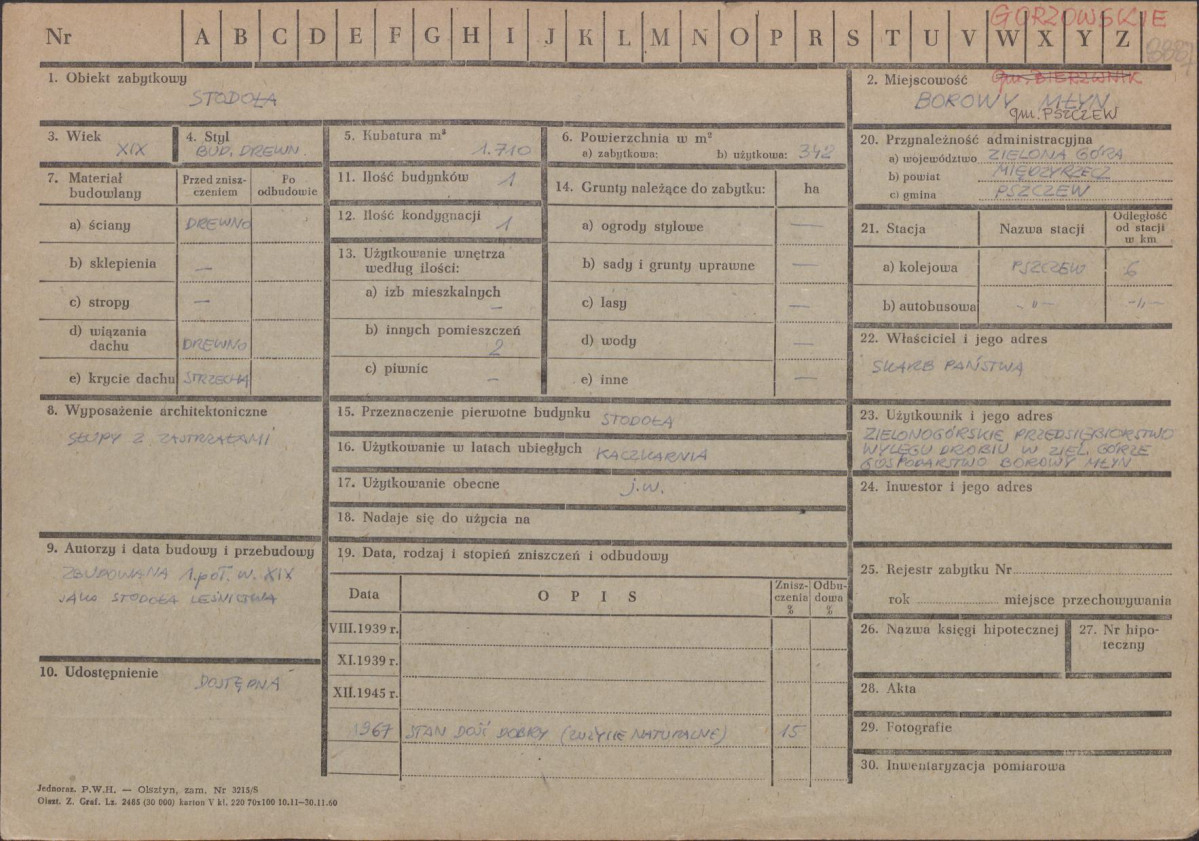 GORZOWSKIE
Nr A B C D E F G H I J K L M N O P R S T U V W X Y Z
1. Obiekt zabytkowy
STODOŁA
2. Miejscowość gm. BIERZWNIK
BOROWY MŁYN
gm. PSZCZEW
3. Wiek
XIX
4. Styl
BUD. DREWN.
5. Kubatura m³
1.710
6. Powierzchnia w m²
a) zabytkowa: b) użytkowa: 342
20. Przynależność administracyjna
a) województwo ZIELONA GÓRA
b) powiat MIĘDZYRZECZ
c) gmina PSZCZEW
7. Materiał budowlany
Przed znisz-
czeniem
Po
odbudowie
a) ściany DREWNO
b) sklepienia —
c) stropy —
d) wiązania
dachu DREWNO
e) krycie dachu STRZECHA
11. Ilość budynków 1
12. Ilość kondygnacji 1
13. Użytkowanie wnętrza
według ilości:
a) izb mieszkalnych —
b) innych pomieszczeń
2
c) piwnic —
14. Grunty należące do zabytku: ha
a) ogrody stylowe —
b) sady i grunty uprawne —
c) lasy —
d) wody —
e) inne —
21. Stacja Nazwa stacji
Odległość
od stacji
w km
a) kolejowa PSZCZEW 6
b) autobusowa -„- -„-
22. Właściciel i jego adres
SKARB PAŃSTWA
8. Wyposażenie architektoniczne
SŁUPY Z ZASTRZAŁAMI
15. Przeznaczenie pierwotne budynku STODOŁA
16. Użytkowanie w latach ubiegłych KACZKARNIA
17. Użytkowanie obecne j.w.
18. Nadaje się do użycia na
23. Użytkownik i jego adres
ZIELONOGÓRSKIE PRZEDSIĘBIORSTWO
WYLĘGU DROBIU W ZIEL. GÓRZE
GOSPODARSTWO BOROWY MŁYN
24. Inwestor i jego adres
9. Autorzy i data budowy i przebudowy
ZBUDOWANA 1. poł. w. XIX
JAKO STODOŁA LEŚNICTWA
10. Udostępnienie
DOSTĘPNA
19. Data, rodzaj i stopień zniszczeń i odbudowy
Data OPIS
Znisz-
czenia
%
Odbu-
dowa
%
VIII.1939 r.
XI.1939 r.
XII.1945 r.
1967 STAN DOŚĆ DOBRY (ZUŻYCIE NATURALNE) 15
25. Rejestr zabytku Nr
rok miejsce przechowywania
26. Nazwa księgi hipotecznej
27. Nr hipo-
teczny
28. Akta
29. Fotografie
30. Inwentaryzacja pomiarowa
Jednoraz. P.W.H. — Olsztyn, zam. Nr 3215/S
Olszt. Z. Graf. Lz. 2485 (30 000) karton V kl. 220 70x100 10.11—30.11.60